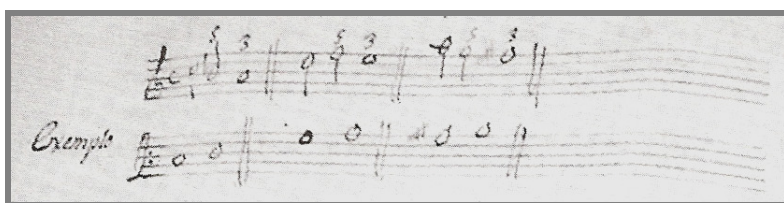 5 3 5 3 5 3
Exemplo